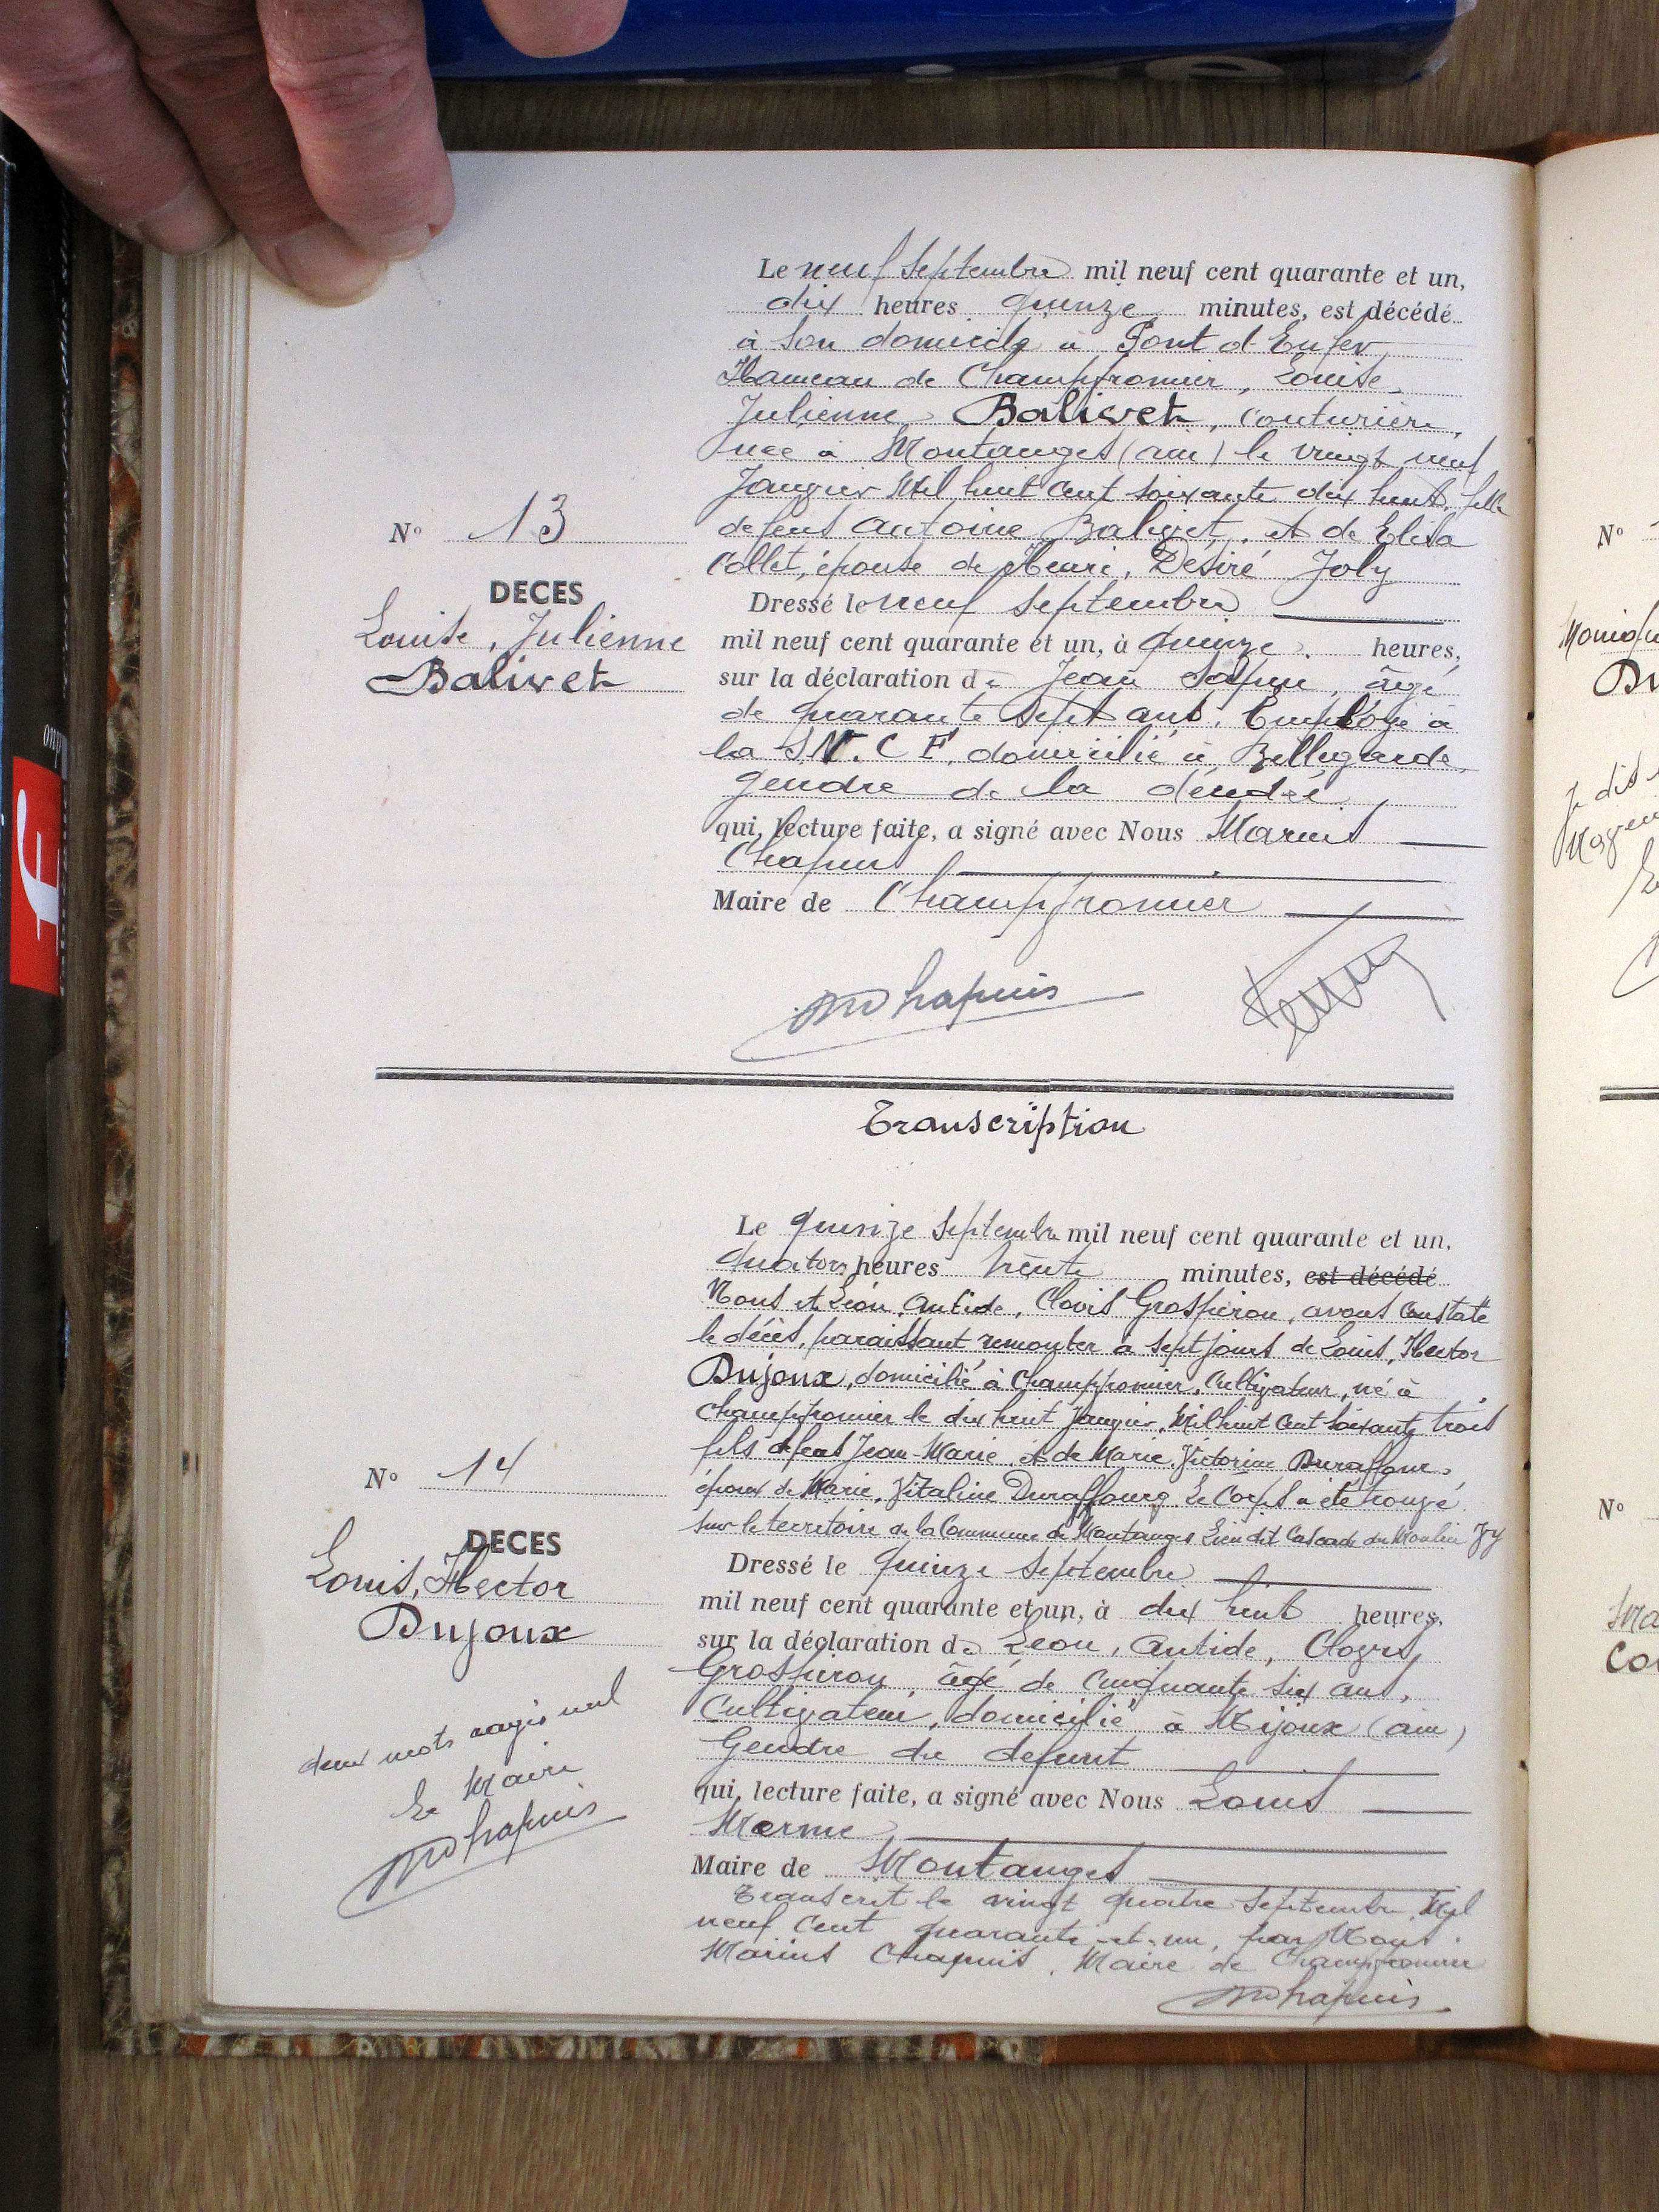 Le neuf Septembre mil neuf cent quarante et un,
dix heures quinze minutes, est décédé
à son domicile à Pont d'Enfer
Hameau de Champfromier, Louise,
Julienne Balivet, couturière,
née à Montanges (ain) le vingt neuf
Janvier Mil huit cent soixante dix huit, fille
de feu Antoine Balivet, et de Elisa
Collet, épouse de Henri, Désiré Joly
N° 13
DECES
Louise, Julienne
Balivet
Dressé le neuf Septembre
mil neuf cent quarante et un, à quinze heures,
sur la déclaration de Jean, âgé
de quarante sept ans, Employé à
la S.N.C.F. domicilié à Bellegarde,
gendre de la
qui, lecture faite, a signé avec Nous Marius
Chapuis
Maire de Champfromier
MChapuis
Transcription
Le quinze Septembre mil neuf cent quarante et un,
quatorz heures trente minutes, est décédé
Nous et Léon, Antide, Clovis Grospiron, avons constaté
le décès, paraissant remonter à sept jours de Louis, Hector
Dujoux, domicilié à Champfromier, Cultivateur, né à
Champfromier le dix huit Janvier, Mil huit cent soixante trois
fils de feus Jean-Marie, et de Marie, Victorine Duraffour,
époux de Marie, Vitaline Duraffourg Le Corps a été trouvé
sur le territoire de la Commune de Montanges Lieu dit Cascade du Moulin
N° 14
DECES
Louis, Hector
Dujoux
Dressé le quinze Septembre
mil neuf cent quarante et un, à dix huit heures,
sur la déclaration de Léon, Antide, Clovis,
Grospiron, âgé de cinquante six ans,
Cultivateur, domicilié à Mijoux (ain)
Gendre du defunt
qui, lecture faite, a signé avec Nous Louis
Marme
Maire de Montanges
Transcrit le vingt quatre Septembre, Mil
neuf cent quarante-et-un, par Nous
Marius Chapuis, Maire de Champfromier
MChapuis
deux mots rayés nul
Le Maire
MChapuis
N°
N°